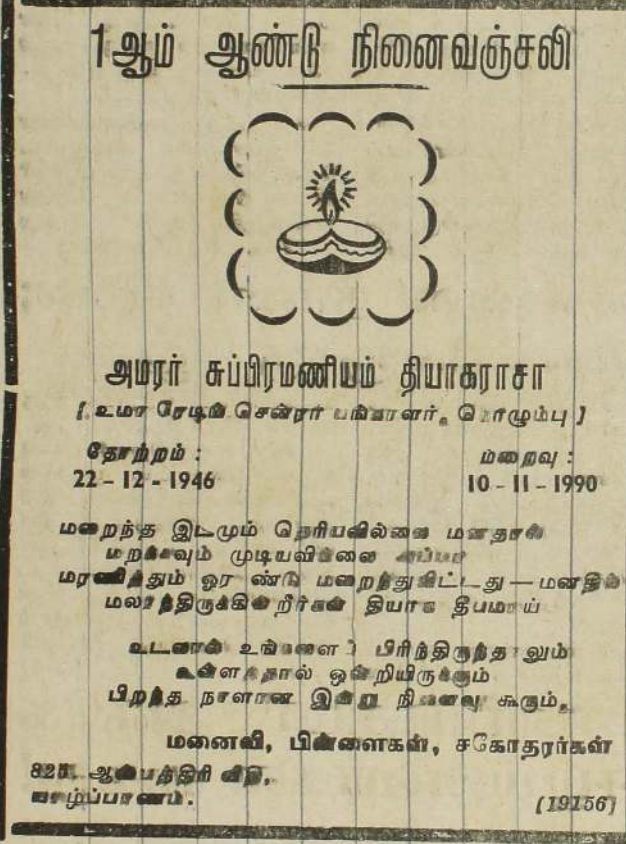 1ஆம் ஆண்டு நினைவஞ்சலி
அமரர் சுப்பிரமணியம் தியாகராசா
[ உமா ரேடிங் சென்ரர் பங்காளர், கொழும்பு ]
தோற்றம் :
22 - 12 - 1946
மறைவு :
10 - 11 - 1990
மறைந்த இடமும் தெரியவில்லை மனதால்
மறக்கவும் முடியவில்லை
மரணித்தும் ஓராண்டு மறைந்துவிட்டது — மனதில்
மலர்ந்திருக்கின்றீர்கள் தியாக தீபமாய்
உடலால் உங்களைப் பிரிந்திருந்தாலும்
உள்ளத்தால் ஒன்றியிருக்கும்
பிறந்த நாளான இன்று நினைவு கூரும்,
மனைவி, பிள்ளைகள், சகோதரர்கள்
825, ஆஸ்பத்திரி வீதி,
யாழ்ப்பாணம்.
[19156]